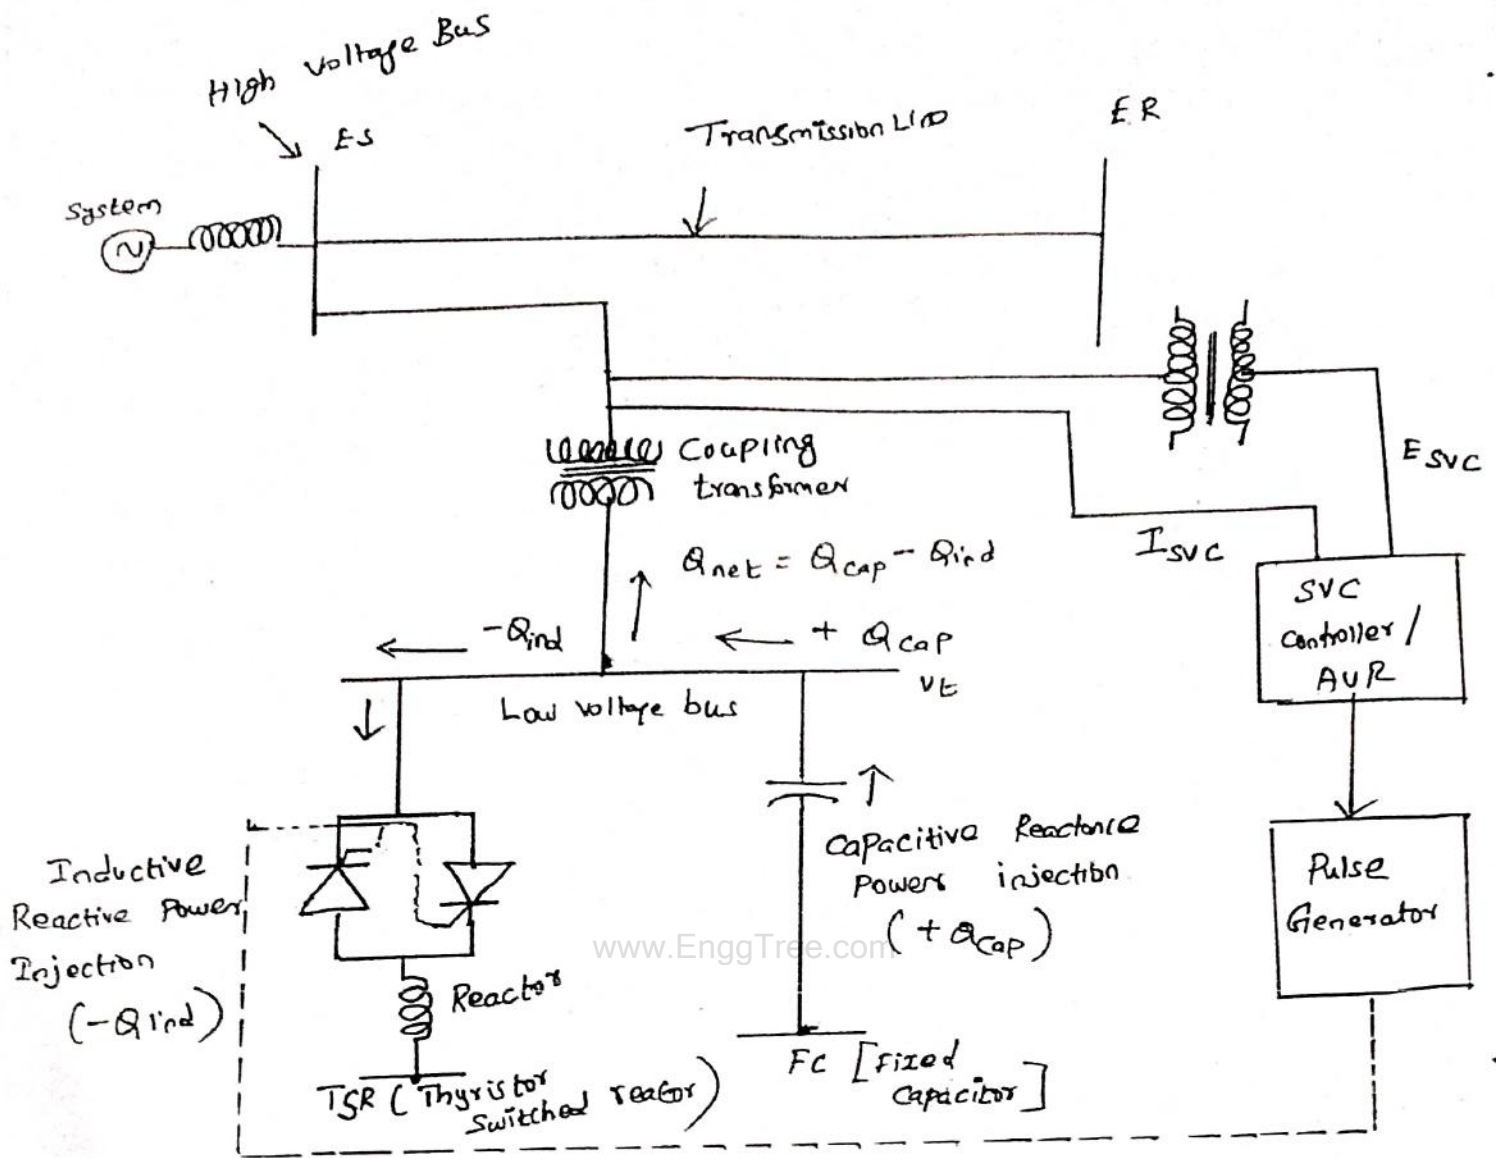 High Voltage Bus
ES
Transmission Line
ER
System
Coupling
transformer
E SVC
I SVC
Qnet = Qcap - Qind
SVC
Controller /
AVR
- Qind
+ Qcap
Vt
Low voltage bus
Capacitive Reactance
Power injection
(+ Qcap)
Inductive
Reactive Power
Injection
(-Qind)
Pulse
Generator
www.EnggTree.com
Reactor
TSR (Thyristor
Switched reator)
FC [Fixed
Capacitor]